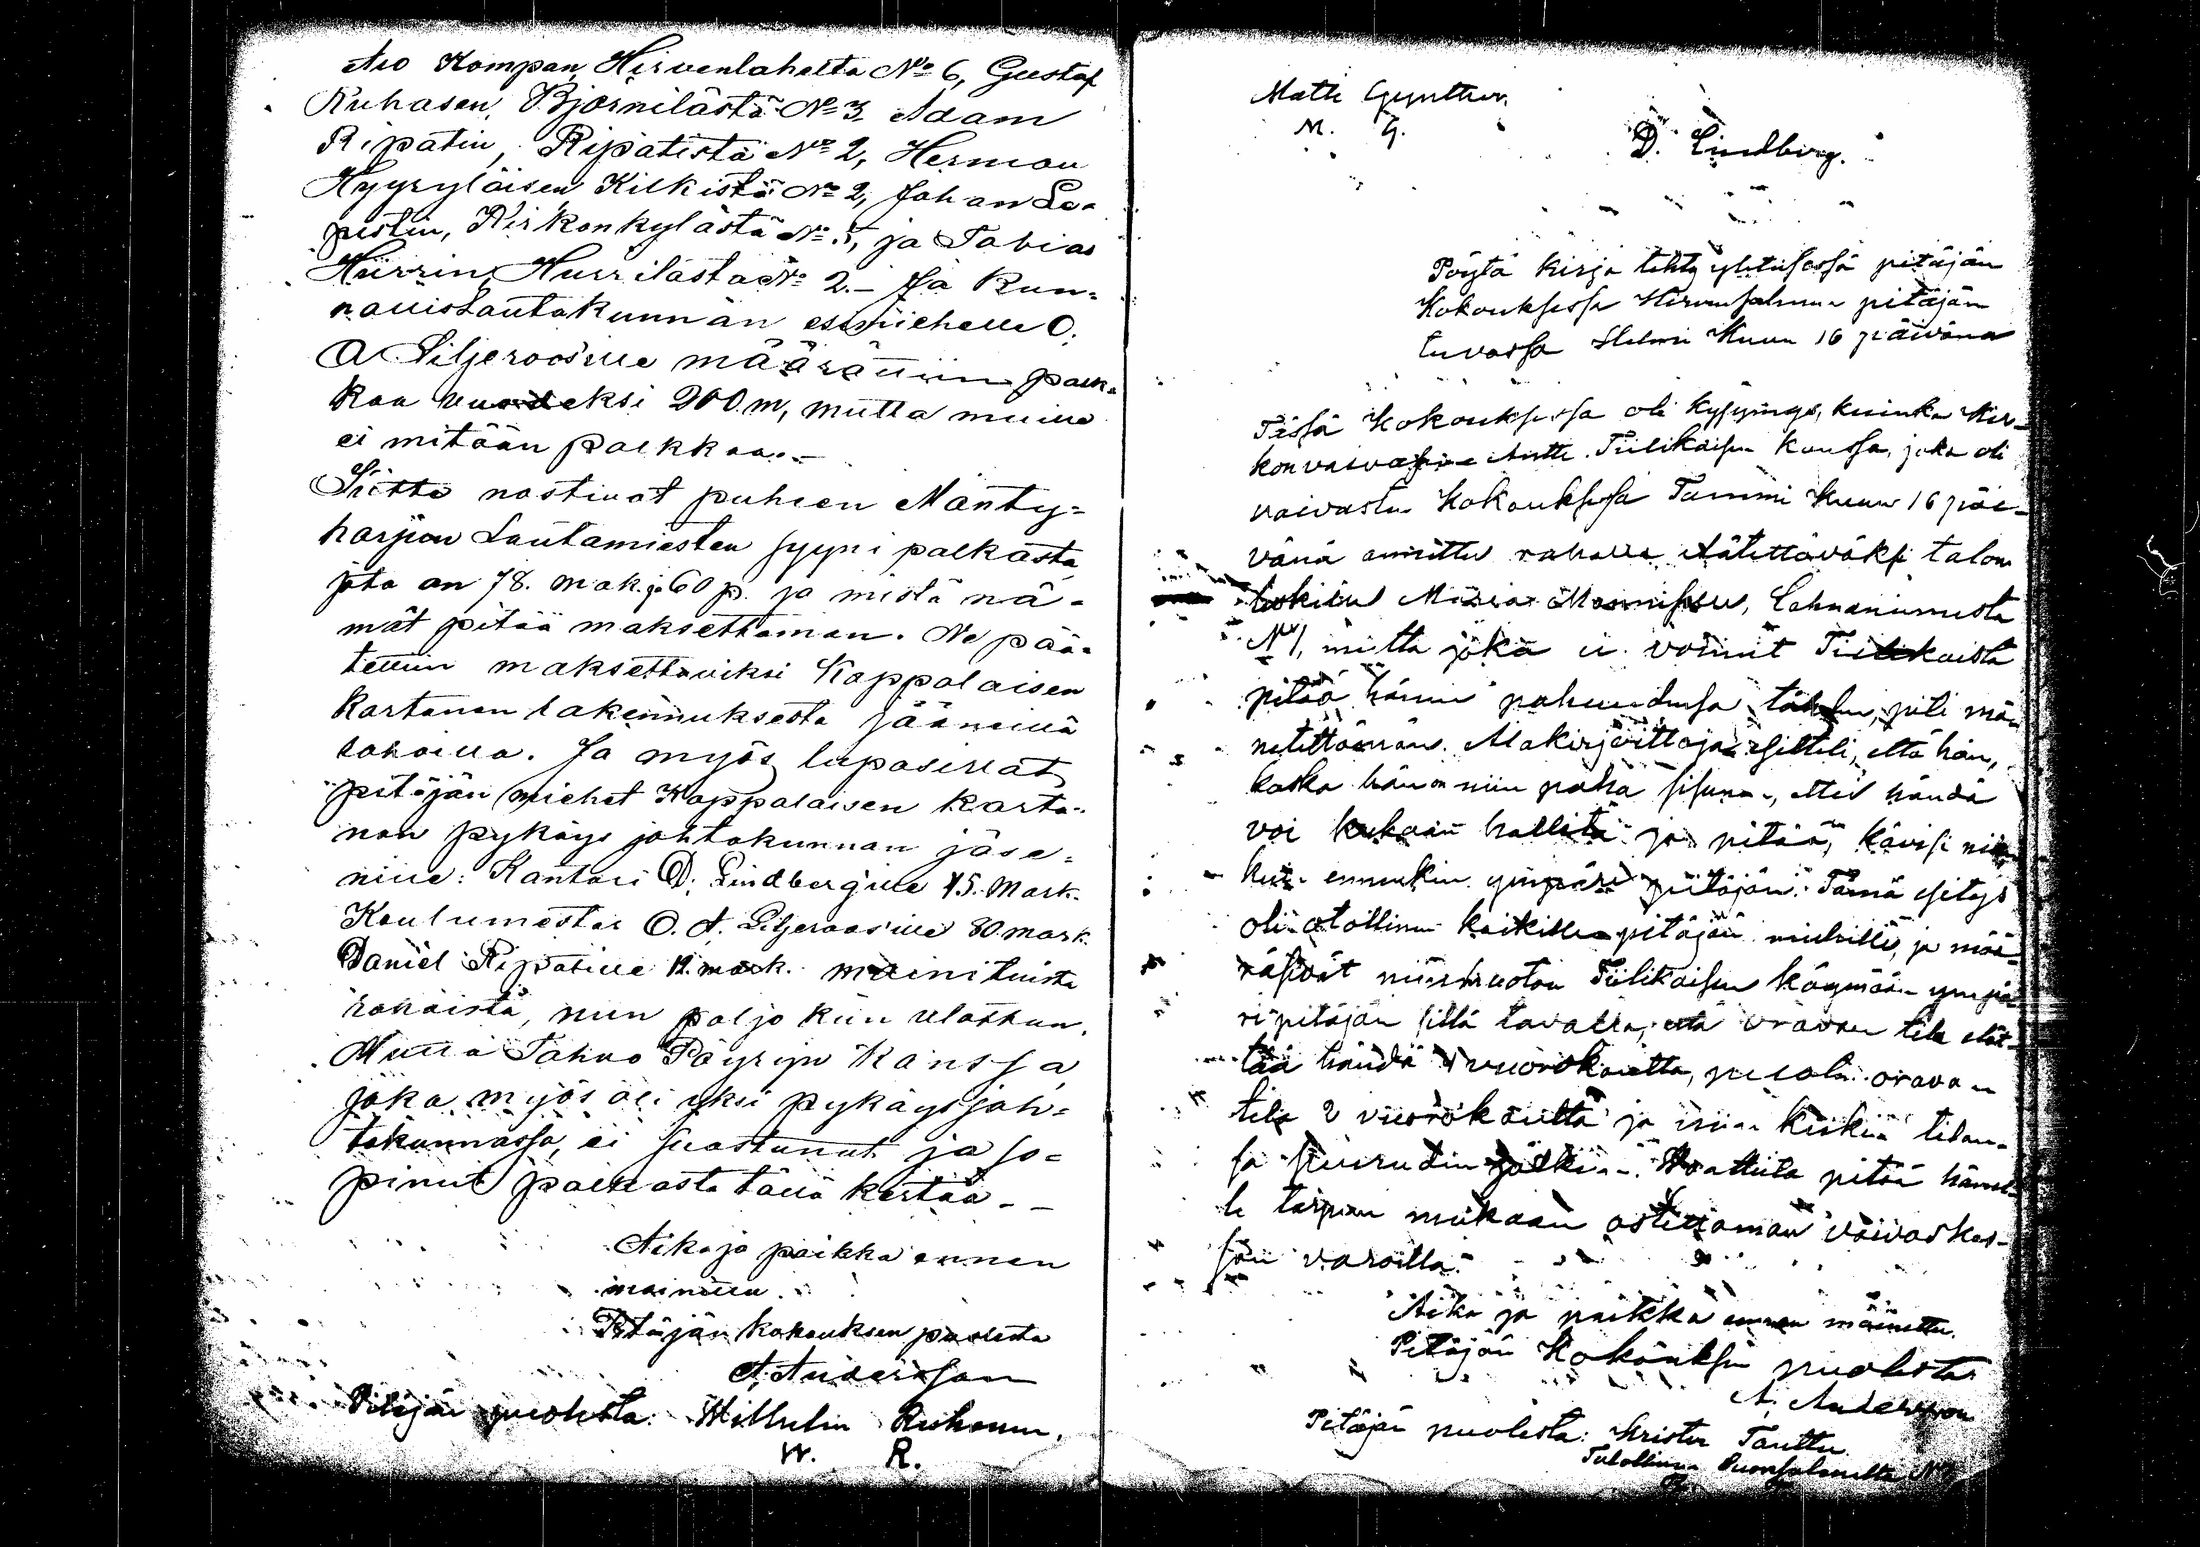 Aio Kompan, Hirvenlahelta No 6, Gustaf
Ruhasen, Björnilästä No 3, Adam
Ripatin, Ripatista No 2, Herman
Hyyryläisen Kilkistä No 2, Johan Le-
pistin, Kirkonkylästä No 5, ja Tobias
Hürrin, Hurrilasta No 2.- Ja Kun-
nallislautakunnan esimiehelle O.
A Liljeroos'ille määrättiin palk-
kaa vuodeksi 200 m, mutta muille
ei mitään palkkaa.-
Siitte nostivat puheen Mänty-
harjun Lautamiesten syyni palkasta
jota on 78. mak. ja 60 p. ja mistä nä-
mät pitää maksettaman. Ne pää-
tettiin maksettaviksi Kappalaisen
Kartanon rakennuksesta jääneillä
rahoilla. Ja myös lupasivat
pitäjän miehet Kappalaisen karta-
non pykäys johtokunnan jäse-
nille: Kanttori D. Lindberg'ille 75. Mark.
Koulumestar O. A. Liljeroos'ille 80 mark.
Daniel Ripatille 12. mark. mainituista
rahoista, niin paljo kun ulottuu.
Mutta Tahvo Pöyryn kanssa
joka myös oli yksi pykäysjoh-
tokunnassa, ei suostunut ja so-
pinut palkasta tällä kertaa.-
Aika ja paikka ennen
mainittu.
Pitäjän kokouksen puolesta
A. Andersson
Pitäjän puolesta: Willhelm Ruhanen.
W. R.
Matti Gynther
M. G.
D. Lindberg.
Pöytä kirja tehty yhteisessä pitäjän
Kokouksessa Hirvensalmen pitäjän
tuvassa Helmi Kuun 16 päivänä
Tässä Kokouksessa oli kysymys, kuinka Kir-
konvaivaisen Antti Tiilikaisen kanssa, joka oli
vaivaisten Kokouksessa Tammi Kuun 16 päi-
vänä annettu rahalla elätettäväksi talon
Maria Lahnaniemestä
No 1, mutta joka ei voinut Tiilikaista
pitää hänen pahuudensa tähden, piti
Allakirjoittaja esitteli, että hän,
koska hän on niin paha sisunen, ettei händä
voi kukaan hallita ja pitää, kävisi niin
kuin ennenkin ympäri pitäjän. Tämä esitys
oli otollinen kaikille pitäjän miehille, ja mää-
räsivät niinmuoton Tiilikaisen käymään ympä
ri pitäjän sillä tavalla, että oravan tila elät-
tää händä 4 vuorokautta, puoli oravan
tila 2 vuorokautta ja niin kaikin tilan-
sa suuruden jälkeen. Waatteita pitää hänel-
le tarpeen mukaan ostettaman vaivaskas-
san varoilla.
Aika ja paikka ennen mainittu.
Pitäjän Kokouksen puolesta
A. Andersson
Pitäjän puolesta: Krister Tanttu
Talollinen Puonsalmelta No